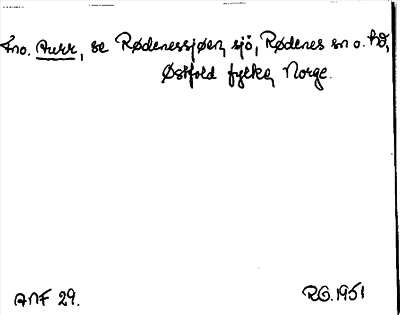 Fno. Aurr, se Rødenessjøen, sjö, Rødenes sn o. hd,
Østfold fylke, Norge.
ANF 29.
RG. 1951